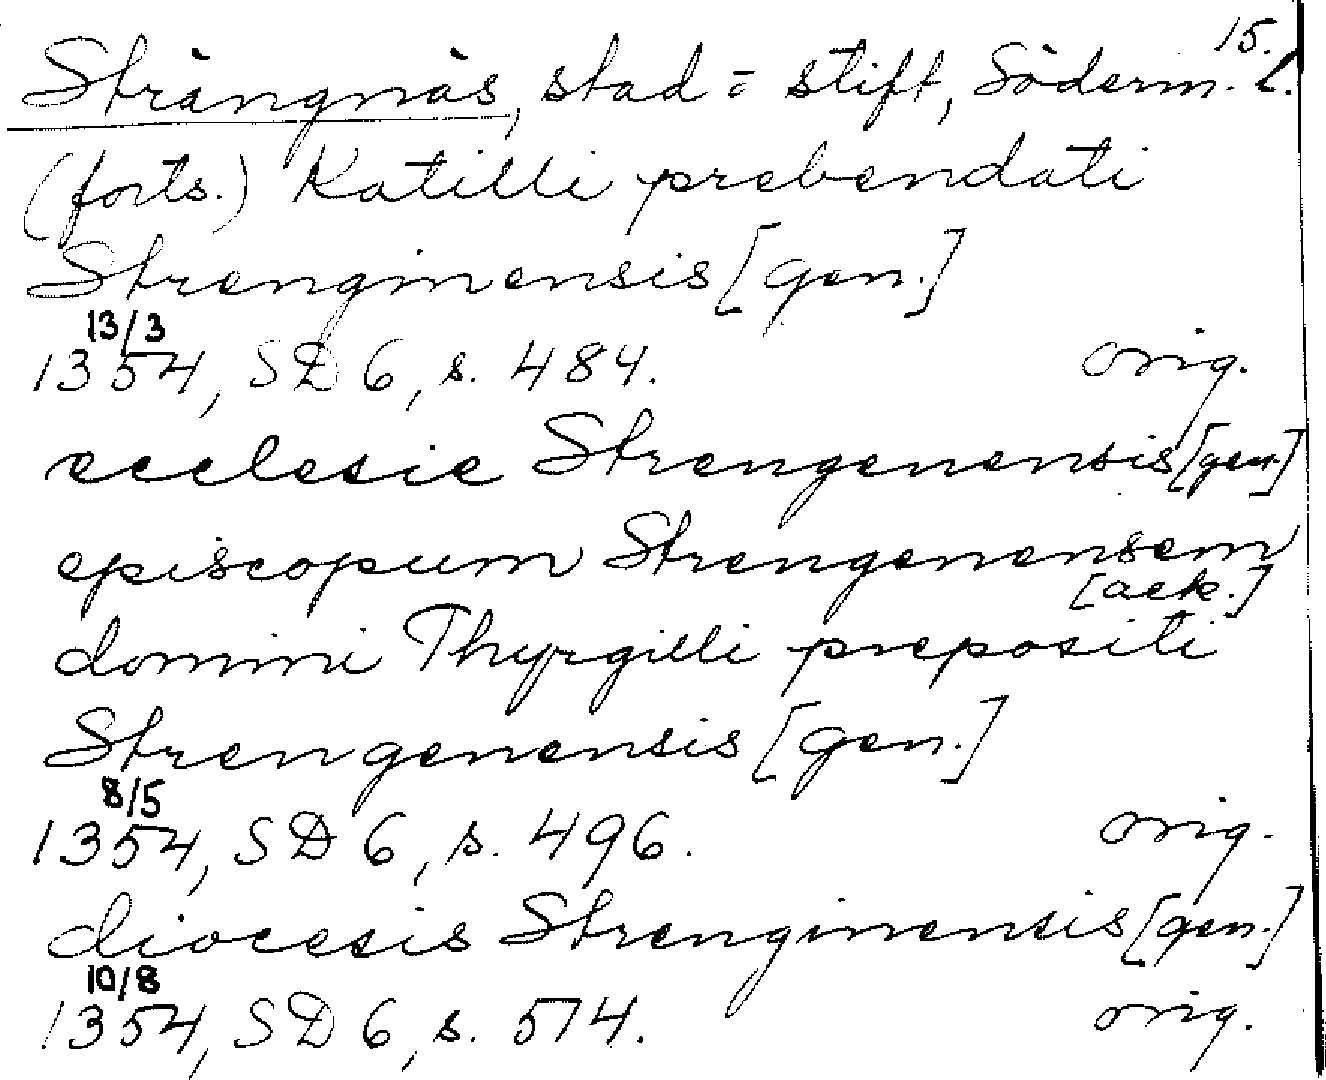 15.
Strängnäs, stad = stift, Söderm. l.
(forts.) Katilli prebendati
Strenginensis [gen.]
13/3
1354, SD 6, s. 484. orig.
ecclesie Strengenensis [gen.]
episcopum Strengenensem
[ack.]
domini Thyrgilli prepositi
Strengenensis [gen.]
8/5
1354, SD 6, s. 496. orig.
diocesis Strenginensis [gen.]
10/8
1354, SD 6, s. 574. orig.